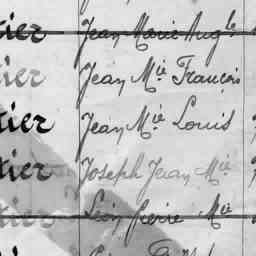 tier Jean Marie Aug^le
tier Jean M^ie François
tier Jean M^ie Louis
tier Joseph Jean M^ie
tier Léon Pierre M^ie